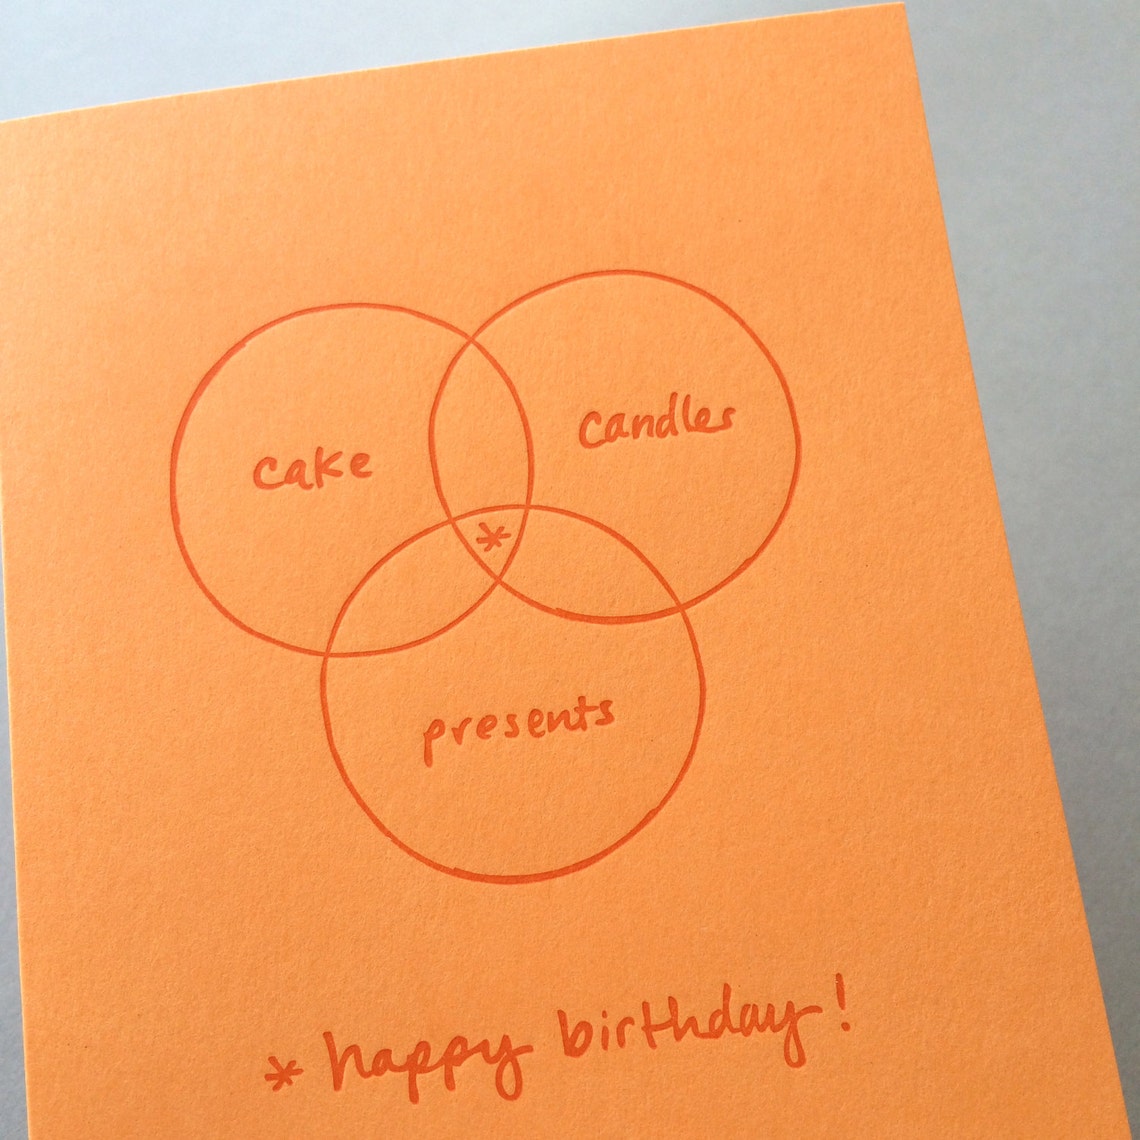 cake
candles
*
presents
* happy birthday!